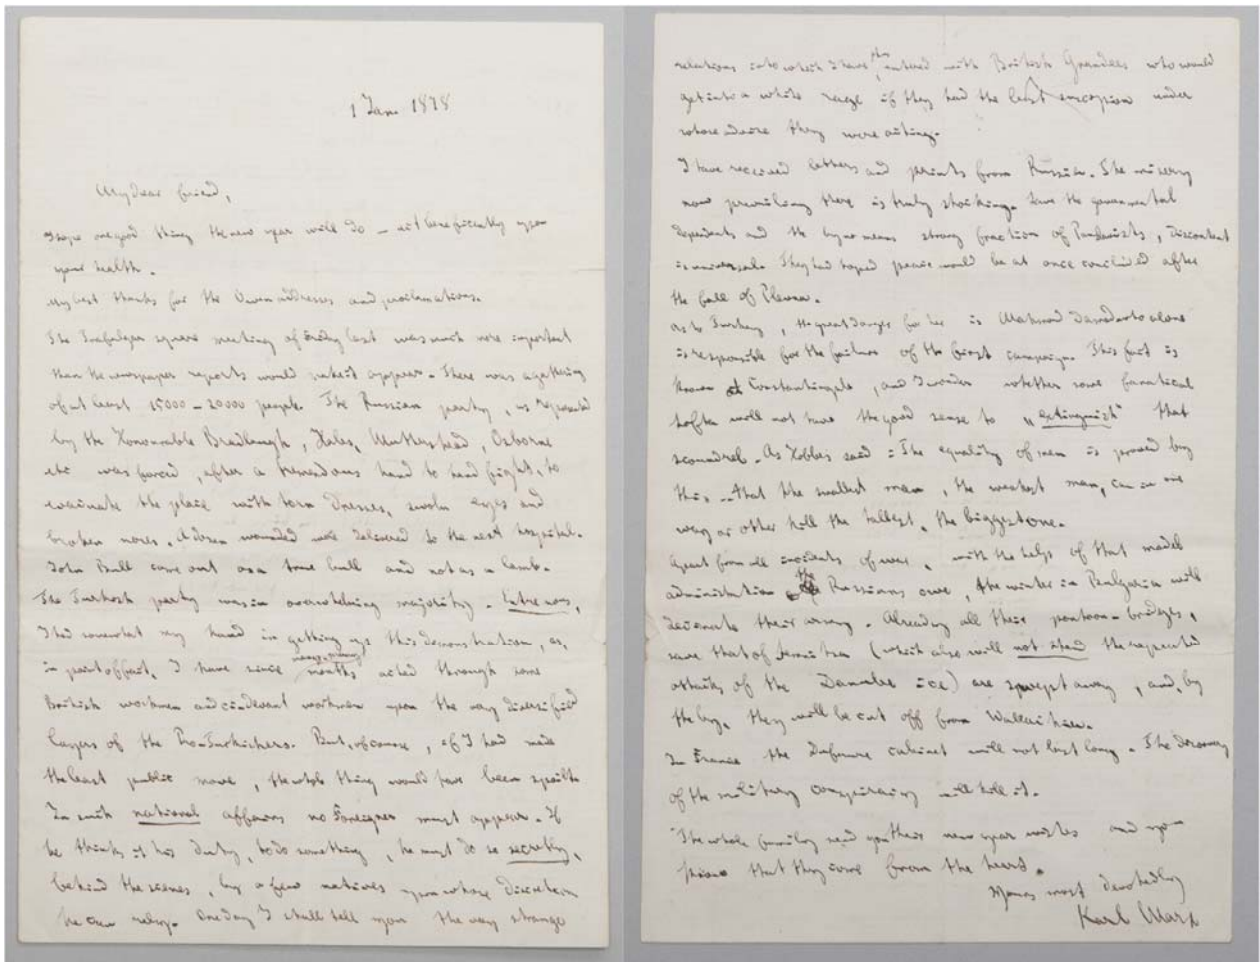 1 Jan. 1878
My dear friend,
I hope one good thing the new year will do – act beneficently upon
your health.
My best thanks for the Owen addresses and proclamations.
The Trafalgar square meeting of Friday last was much more important
than the newspaper reports would make it appear. There was a gathering
of at least 15000–20000 people. The Russian party, as represented
by the Honourable Bradlaugh, Hales, Mottershead, Osborne
etc was forced, after a tremendous hand to hand fight, to
evacuate the place with torn dresses, swoln eyes and
broken noses. A dozen wounded were delivered to the next hospital.
John Bull came out as a true bull and not as a lamb.
The Turkish party was in overwhelming majority. Entre nous,
I had somewhat my hand in getting up this demonstration, as,
in point of fact, I have since many, many months acted through some
British workmen and cidevant workmen upon the very diversified
layers of the Pro-Turkishers. But, of course, if I had made
the least public move, the whole thing would have been spoilt.
In such national affairs no Foreigner must appear. If
he thinks it his duty, to do something, he must do so secretly,
behind the scenes, by a few natives upon whose discretion
he can rely. One day I shall tell you the very strange
relations into which I have thus entered with British Grandees who would
get into a white rage if they had the least suscipion under
whose advise they were acting.
I have received letters and prints from Russia. The misery
now prevailing there is truly shocking. Save the governmental
dependents and the by no means strong fraction of Panslavists, discontent
is universal. They had hoped peace would be at once concluded after
the fall of Plevna.
As to Turkey, the great danger for her is Mahmoud Damad who alone
is responsible for the failure of the first campaign. This fact is
known at Constantinople, and I wonder whether some fanatical
softa will not have the good sense to „extinguish" that
scoundrel. As Hobbes said: The equality of men is proved by
this – that the smallest man, the weakest man, can in one
way or other kill the tallest, the biggest one.
Apart from all incidents of war, with the help of that model
administration the Russians own, the winter in Bulgaria will
decimate their army. Already all their pontoon-bridges,
save that of (which also will not stand the repeated
attacks of the Danube ice) are swept away, and, by
the by, they will be cut off from Wallachia.
In France the Dufaure cabinet will not last long. The discovery
of the military conspiracy will kill it.
The whole family send you their new year wishes and
that they come from the heart.
Yours most devotedly
Karl Marx